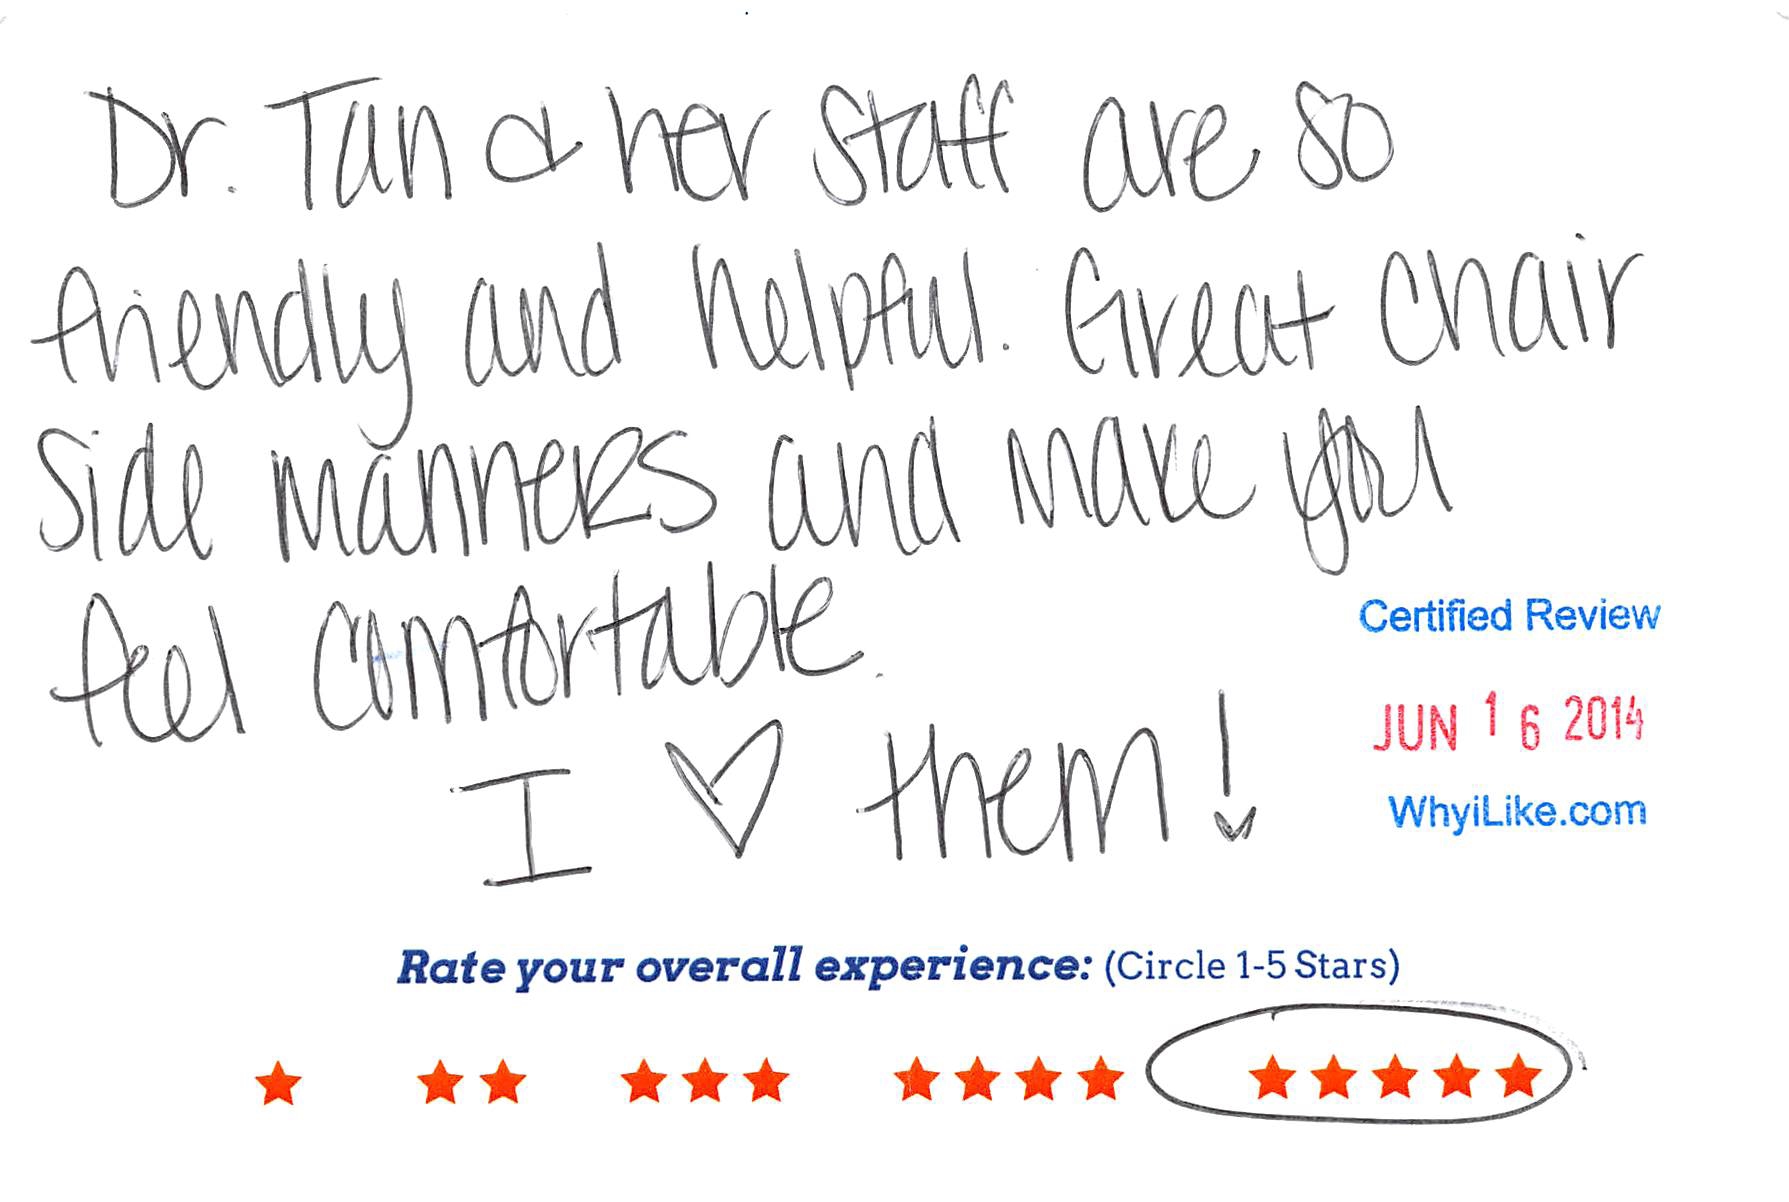 Dr. Tan & her staff are so
friendly and helpful. Great chair
side manners and make you
feel comfortable.
I ♡ them!
Certified Review
JUN 16 2014
WhyiLike.com
Rate your overall experience: (Circle 1-5 Stars)